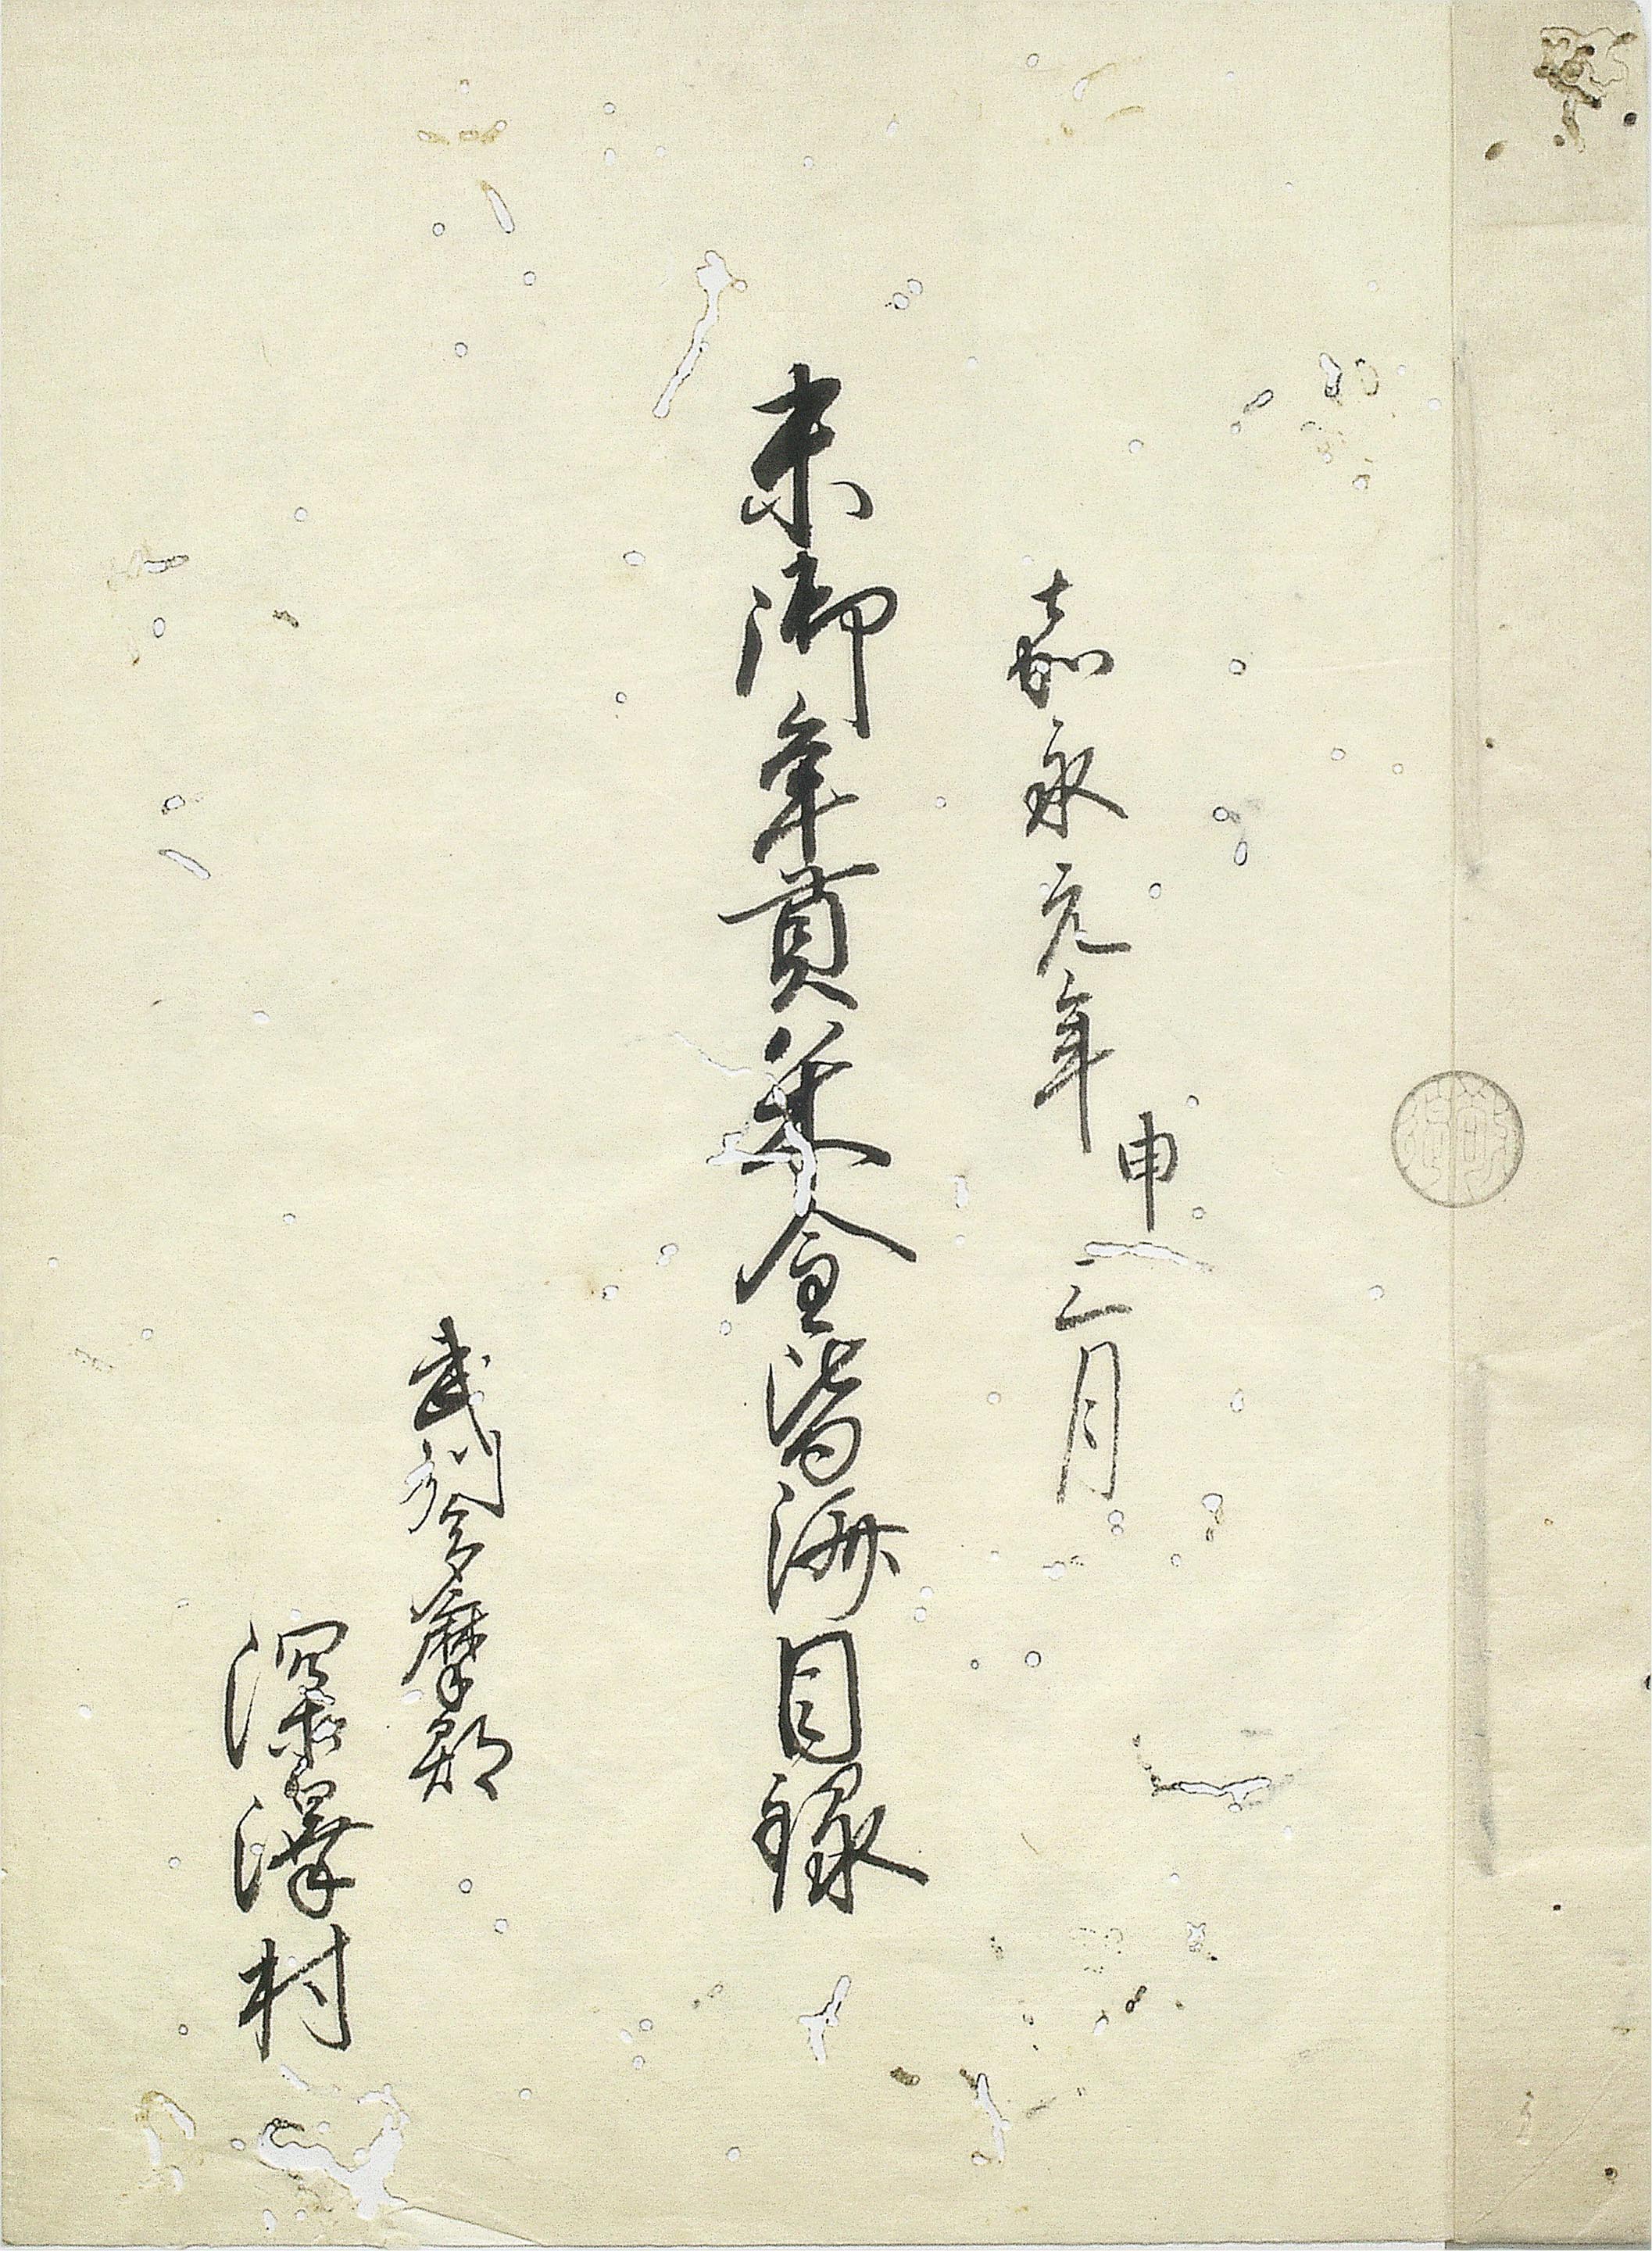 嘉永元年申三月
未御年貢米金皆済目録
武州多摩郡
深澤村